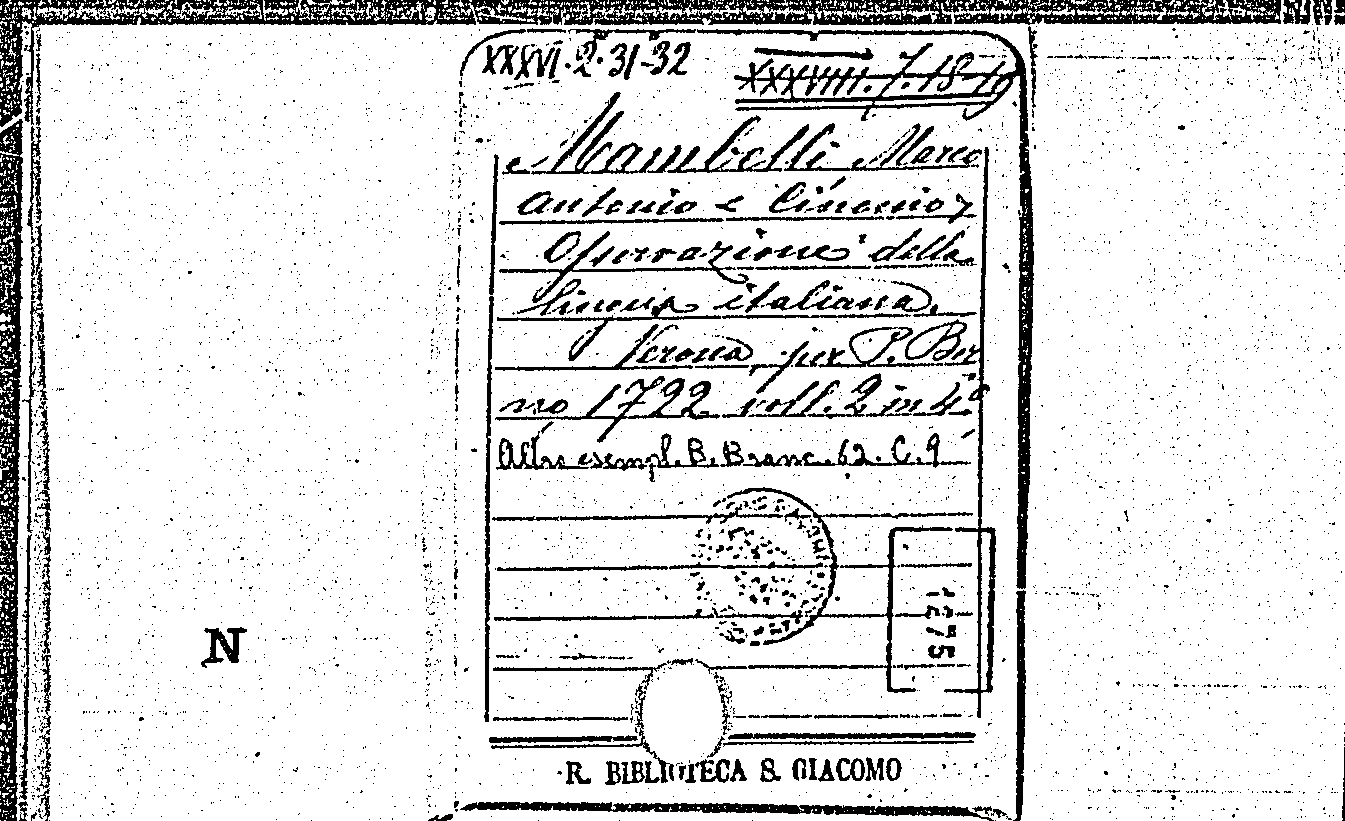 XXXVI.2.31-32
XXXVIII.7.18-19
Mambelli Marco
Antonio e Cinonio,
Osservazione della
lingua italiana.
Verona, per P. Ber
no 1722 voll. 2 in 4.º
Altro esempl. B. Branc. 62. C. 9
1275
N
R. BIBLIOTECA S. GIACOMO